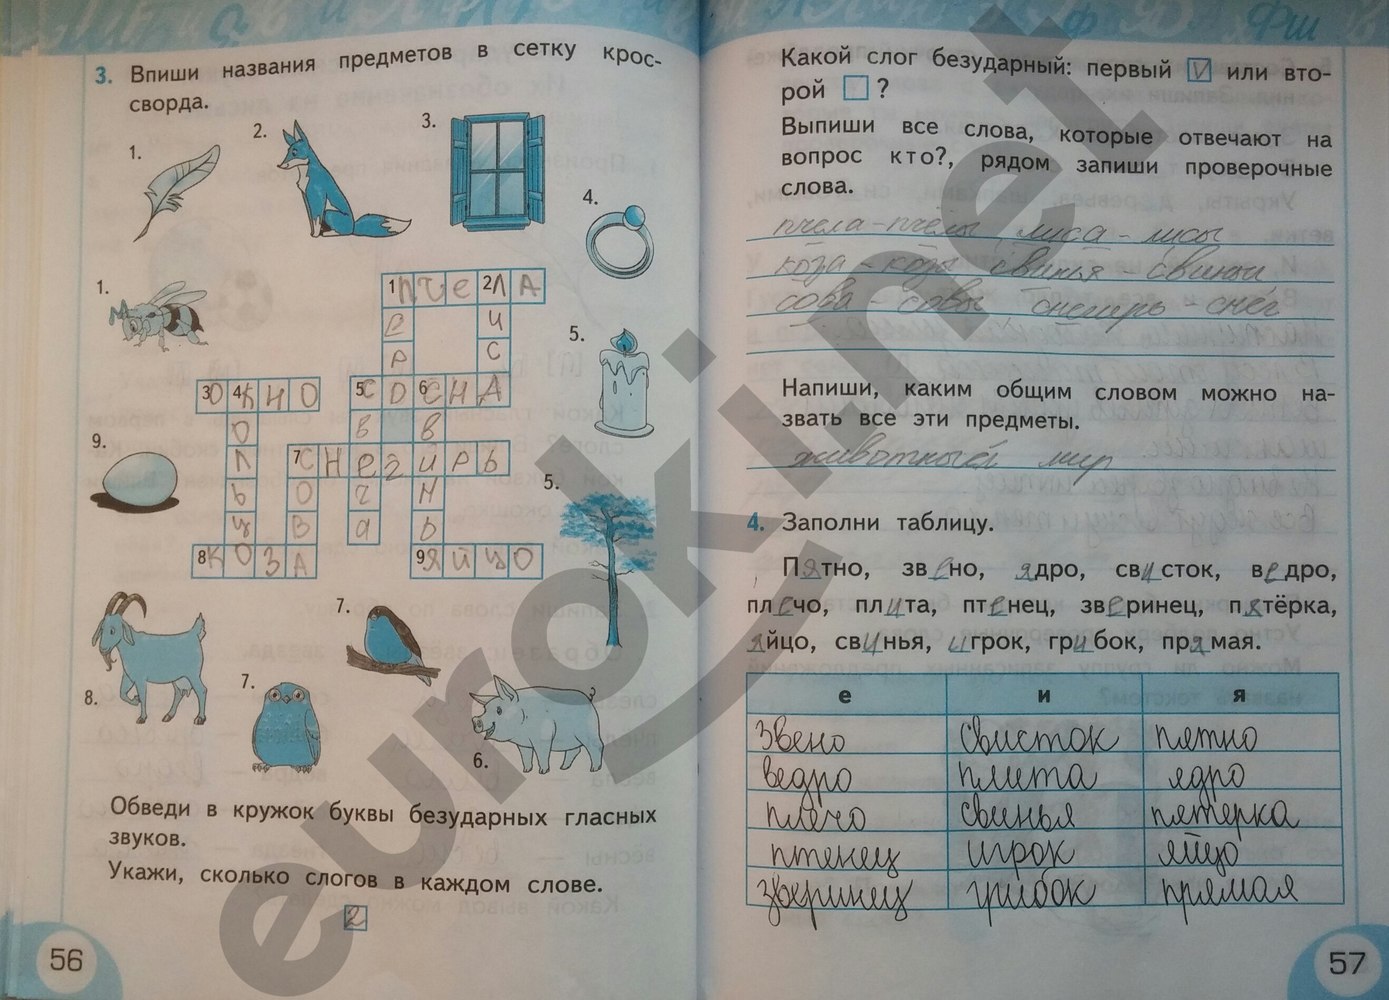 3. Впиши названия предметов в сетку крос-
сворда.
1.
2.
3.
4.
1.
5.
9.
5.
8.
7.
7.
6.
1 п ч е 2 л а
е и
р с
3 о 4 к н о 5 с о 6 с н а
о в в
л 7 с н е г и р ь
ь о ч н
ц в а ь
8 к о з а 9 я й ц о
Обведи в кружок буквы безударных гласных
звуков.
Укажи, сколько слогов в каждом слове.
2
56
Какой слог безударный: первый V или вто-
рой ?
Выпиши все слова, которые отвечают на
вопрос кто?, рядом запиши проверочные
слова.
пчела - пчёлы лиса - лисы
коза - козы свинья - свиньи
сова - совы снегирь - снег
Напиши, каким общим словом можно на-
звать все эти предметы.
животный мир
4. Заполни таблицу.
Пятно, звено, ядро, свисток, ведро,
плечо, плита, птенец, зверинец, пятёрка,
яйцо, свинья, игрок, грибок, прямая.
е и я
звено свисток пятно
ведро плита ядро
плечо свинья пятерка
птенец игрок яйцо
зверинец грибок прямая
57
euroki.net